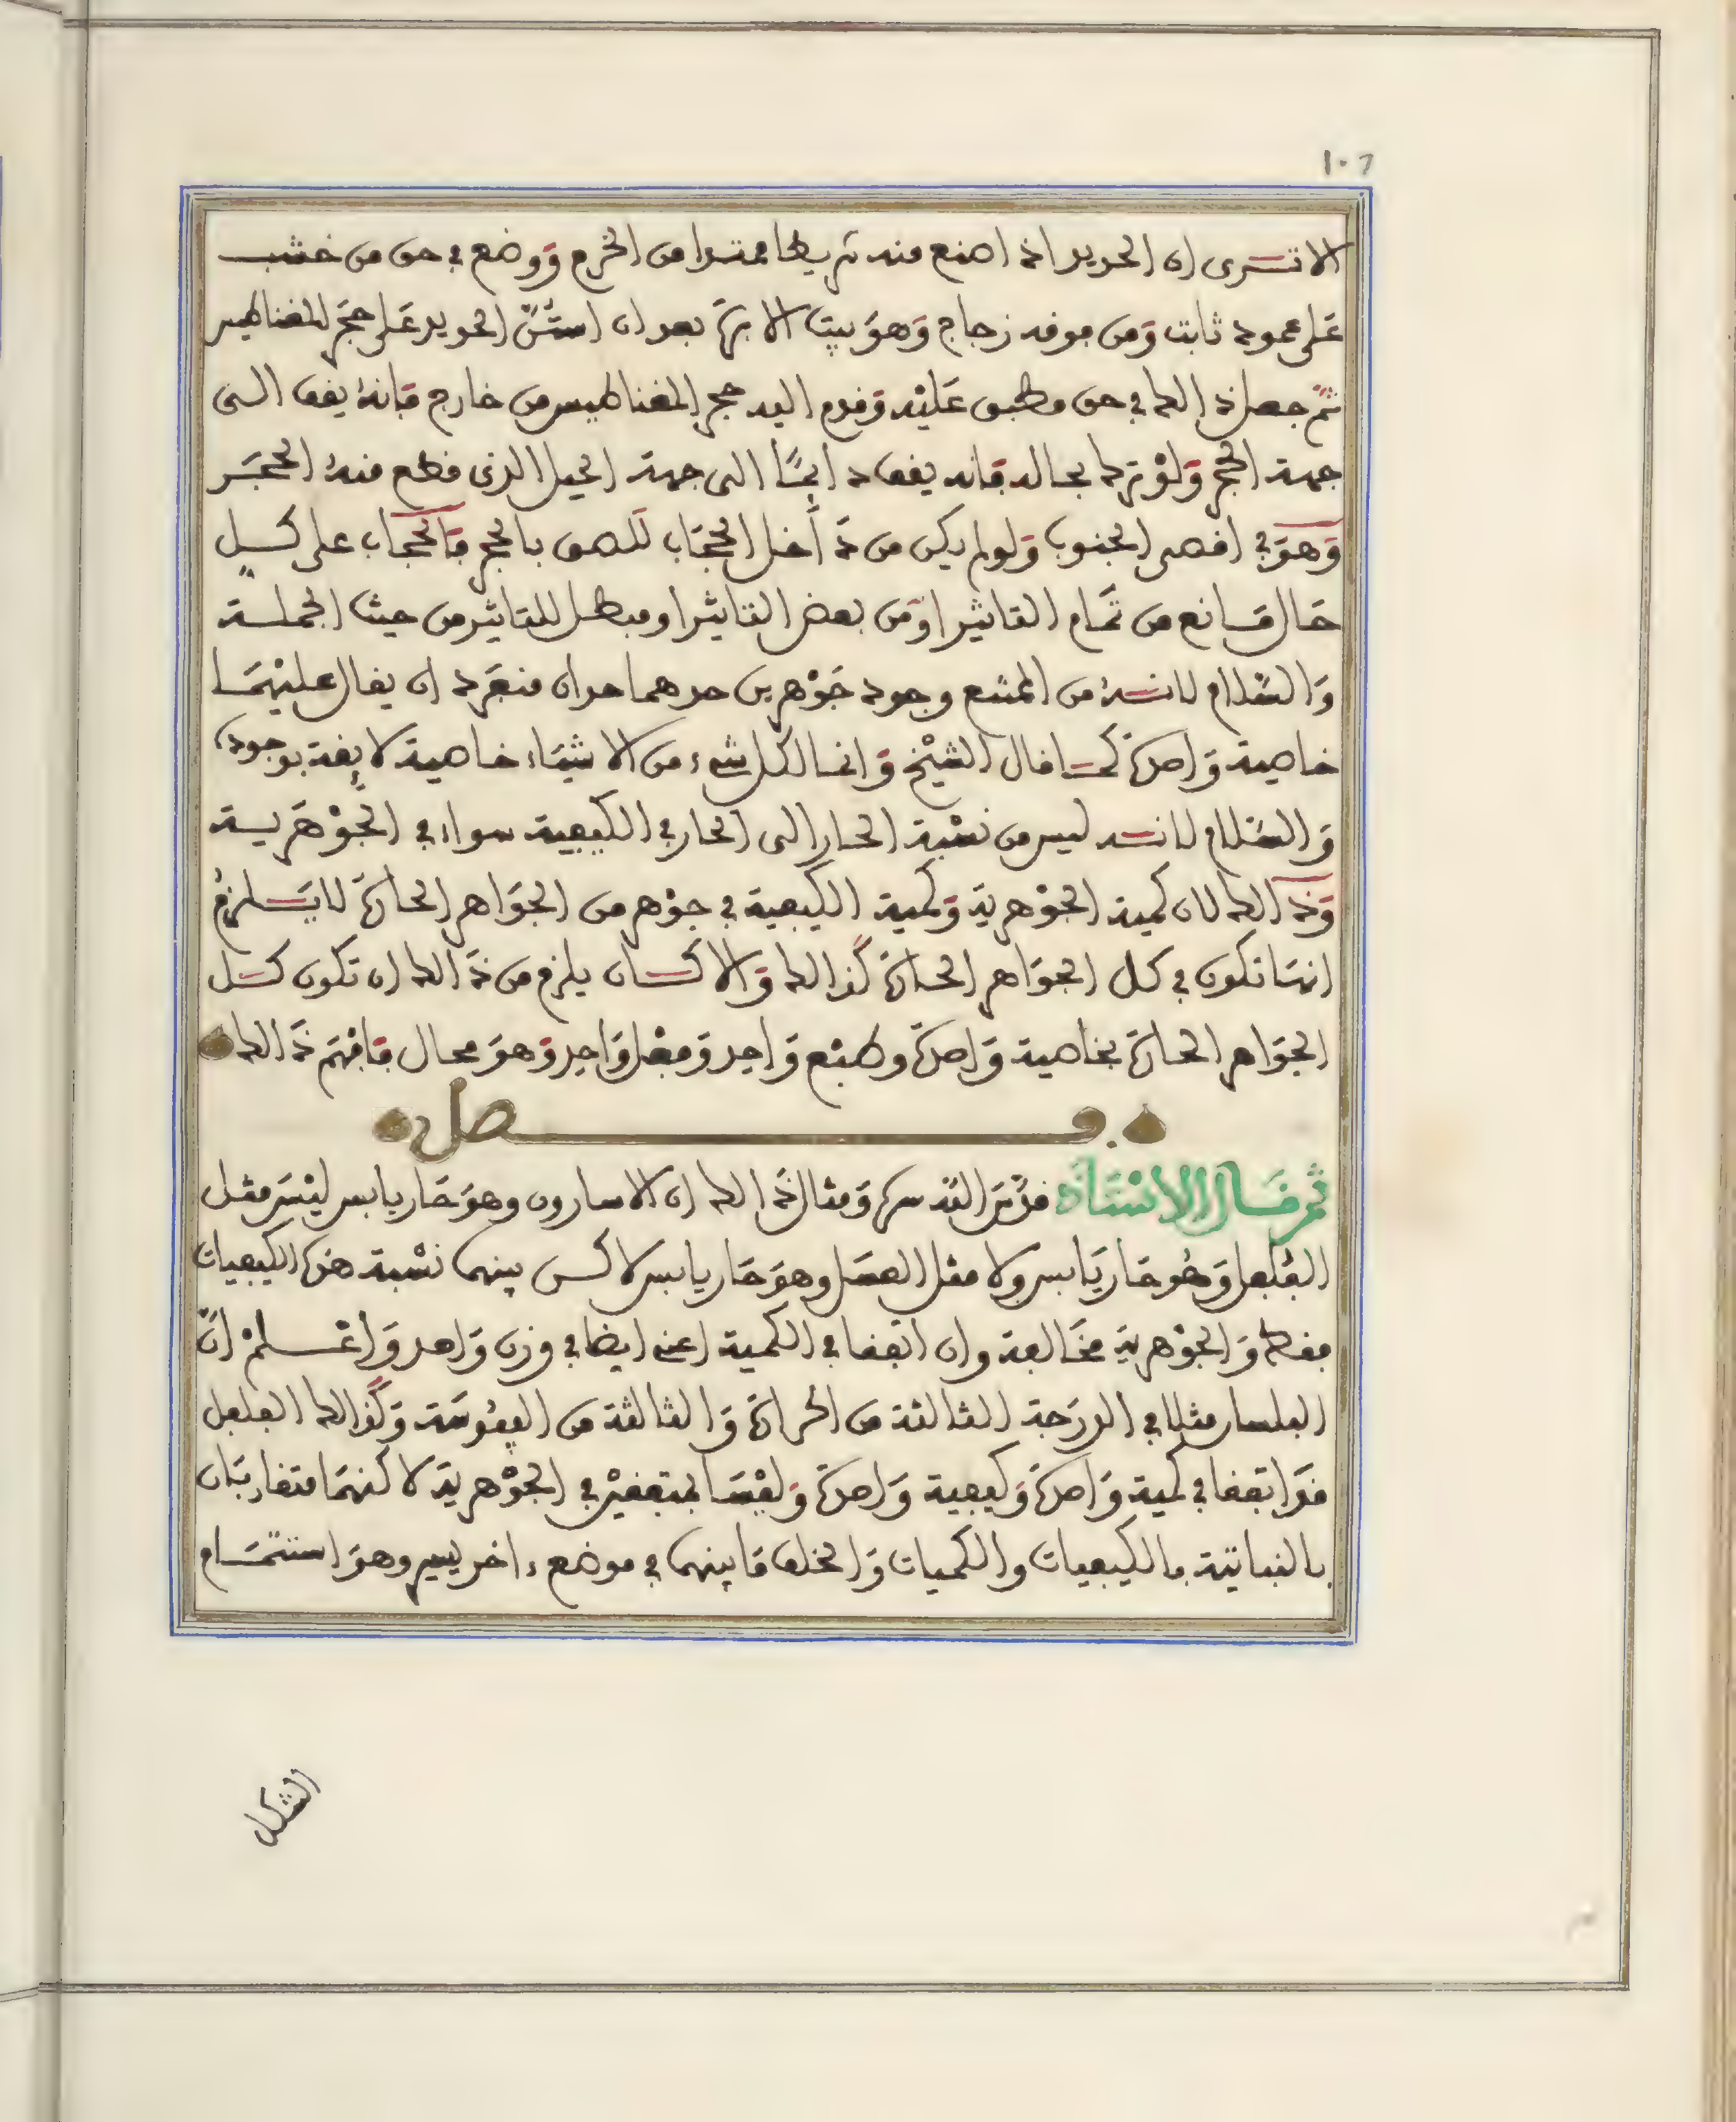 ١٠٦
الا ترى ان الحديد اذا اصنع منه شريطا ممتدا من الخرم ووضع في حق من خشب
على عمود ثابت ومن فوقه زجاج وهو بيت الابرة بعد ان الحديد على حجر المغناطيس
ثم جعل ذالك في حق مطبق عليه وقدم اليه حجر المغناطيس من خارج فانه يقف الى
جهة الحجر ولو ترك بحاله فانه يقف ايضا الى جهة الجبل الذي قطع منه الحجر
وهو في اقصى الجنوب ولو لم يكن من داخل الحجاب للصق بالحجر فالحجاب على كل
حال مانع من تمام التاثير او من بعض التاثير او مبطل للتاثير من حيث الجملة
والسلام لانه من الممتنع وجود جوهرين حدهما حدان منفرد ان يقال عليهما
خاصية واحدة كما قال الشيخ وانما لكل شيء من الاشياء خاصية لايقة بوجوده
والسلام لانه ليس من نسبة الحار الى الحار في الكيفية سواء في الجوهرية
وذالك لان كمية الجوهرية وكمية الكيفية في جوهر من الجواهر الحارة لا يلزم
انها تكون في كل الجواهر الحارة كذالك والا كان يلزم من ذالك ان تكون كل
الجواهر الحارة بخاصية واحدة وطبع واحد وفعل واحد وهو محال فافهم ذالك
فصل
ثم قال الاستاذ قدس الله سره ومثال ذالك ان الاسارون وهو حار يابس ليس مثل
الفلفل وهو حار يابس ولا مثل العسل وهو حار يابس لاكن بينهما نسبة هذه الكيفيات
فقط والجوهرية مخالفة وان اتفقا في الكمية اعني ايضا في وزن واحد واعلم ان
البلسان مثلا في الدرجة الثالثة من الحرارة والثالثة من اليبوسة وكذالك الفلفل
قد اتفقا في كمية واحدة وكيفية واحدة وليسا بمتفقين في الجوهرية لاكنهما متقاربتان
بالنباتية بالكيفيات والكميات والخلف ما بينهما في موضع ءاخر يسير وهو استتمام
الشكل